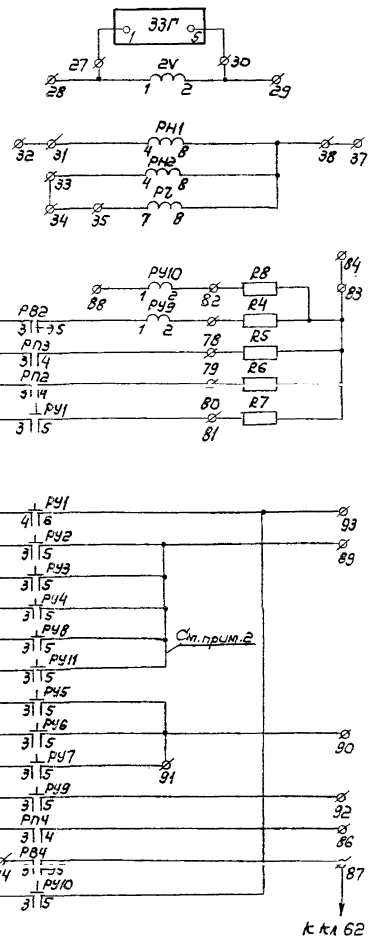 ЗЗГ
1 5
27 30
2V
28 1 2 29
РН1
32 31 4 8 38 37
РН2
33 4 8
РZ
34 35 7 8
84
РУ10 R8 83
88 1 2 82
РВ2 РУ9 R4
3 5 1 2 78
РП3 R5
3 4 79
РП2 R6
3 4
РУ1 80 R7
3 5 81
РУ1
4 6 93
РУ2
3 5 89
РУ3
3 5
РУ4
3 5
РУ8
3 5 См. прим. 2
РУ11
3 5
РУ5
3 5
РУ6
3 5 90
РУ7
3 5 91
РУ9
3 5 92
РП4
3 4 86
РВ4
4 3 5 87
РУ10
3 5
К КЛ 62